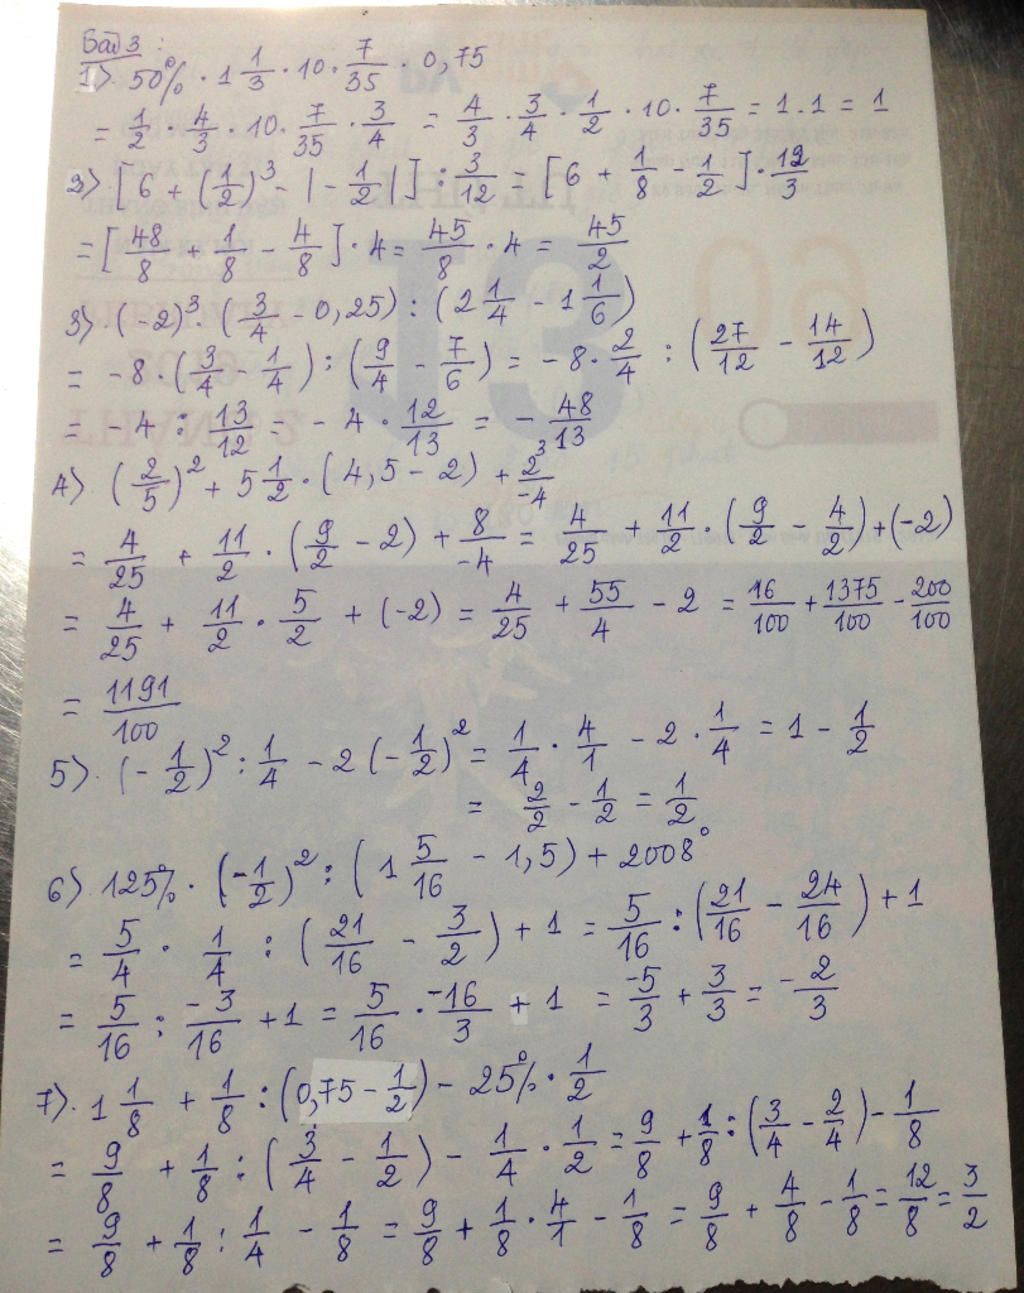 Bài 3:
1) 50% · 1 1/3 · 10 · 7/35 · 0,75
= 1/2 · 4/3 · 10 · 7/35 · 3/4 = 4/3 · 3/4 · 1/2 · 10 · 7/35 = 1 . 1 = 1
2) [6 + (1/2)^3 - |-1/2|] : 3/12 = [6 + 1/8 - 1/2] · 12/3
= [48/8 + 1/8 - 4/8] · 4 = 45/8 · 4 = 45/2
3) (-2)^3 · (3/4 - 0,25) : (2 1/4 - 1 1/6)
= -8 · (3/4 - 1/4) : (9/4 - 7/6) = -8 · 2/4 : (27/12 - 14/12)
= -4 : 13/12 = -4 · 12/13 = -48/13
4) (2/5)^2 + 5 1/2 · (4,5 - 2) + 2^3/-4
= 4/25 + 11/2 · (9/2 - 2) + 8/-4 = 4/25 + 11/2 · (9/2 - 4/2) + (-2)
= 4/25 + 11/2 · 5/2 + (-2) = 4/25 + 55/4 - 2 = 16/100 + 1375/100 - 200/100
= 1191/100
5) (-1/2)^2 : 1/4 - 2 (-1/2)^2 = 1/4 · 4/1 - 2 · 1/4 = 1 - 1/2
= 2/2 - 1/2 = 1/2
6) 125% · (-1/2)^2 : (1 5/16 - 1,5) + 2008^0
= 5/4 · 1/4 : (21/16 - 3/2) + 1 = 5/16 : (21/16 - 24/16) + 1
= 5/16 : -3/16 + 1 = 5/16 · -16/3 + 1 = -5/3 + 3/3 = -2/3
7) 1 1/8 + 1/8 : (0,75 - 1/2) - 25% · 1/2
= 9/8 + 1/8 : (3/4 - 1/2) - 1/4 · 1/2 = 9/8 + 1/8 : (3/4 - 2/4) - 1/8
= 9/8 + 1/8 : 1/4 - 1/8 = 9/8 + 1/8 · 4/1 - 1/8 = 9/8 + 4/8 - 1/8 = 12/8 = 3/2